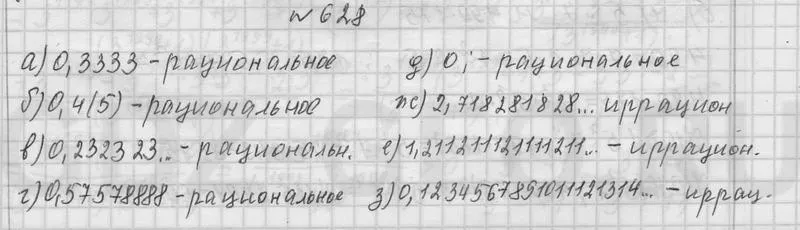 №628
а) 0,3333 - рациональное
д) 0; - рациональное
б) 0,4(5) - рациональное
ж) 2,7182818 28... иррацион
в) 0,232323.. - рациональн.
е) 1,211211121111211... - иррацион.
г) 0,57578888 - рациональное
з) 0,1234567891011121314... - иррац.